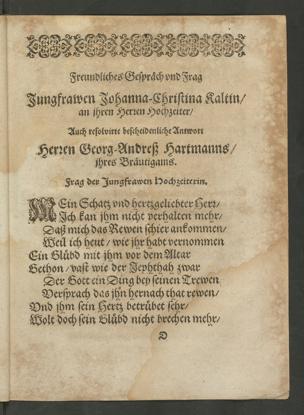 Freundliches Gespräch vnd Frag
Jungfrawen Johanna-Christina Kaltin/
an jhren Herren Hochzeiter/
Auch resolvirte bescheidenliche Antwort
Herren Georg-Andreß Hartmanns/
jhres Bräutigams.
Frag der Jungfrawen Hochzeiterin.
MEin Schatz vnd hertzgeliebter Herr/
Jch kan jhm nicht verhalten mehr/
Daß mich das Rewen schier ankommen/
Weil ich heut/ wie jhr habt vernommen
Ein Glübd mit jhm vor dem Altar
Gethon/ vast wie der Jephthah zwar
Der Gott ein Ding bey seinen Trewen
Versprach das jhn hernach that rewen/
Vnd jhm sein Hertz betrübet sehr/
Wolt doch sein Glübd nicht brechen mehr/
D